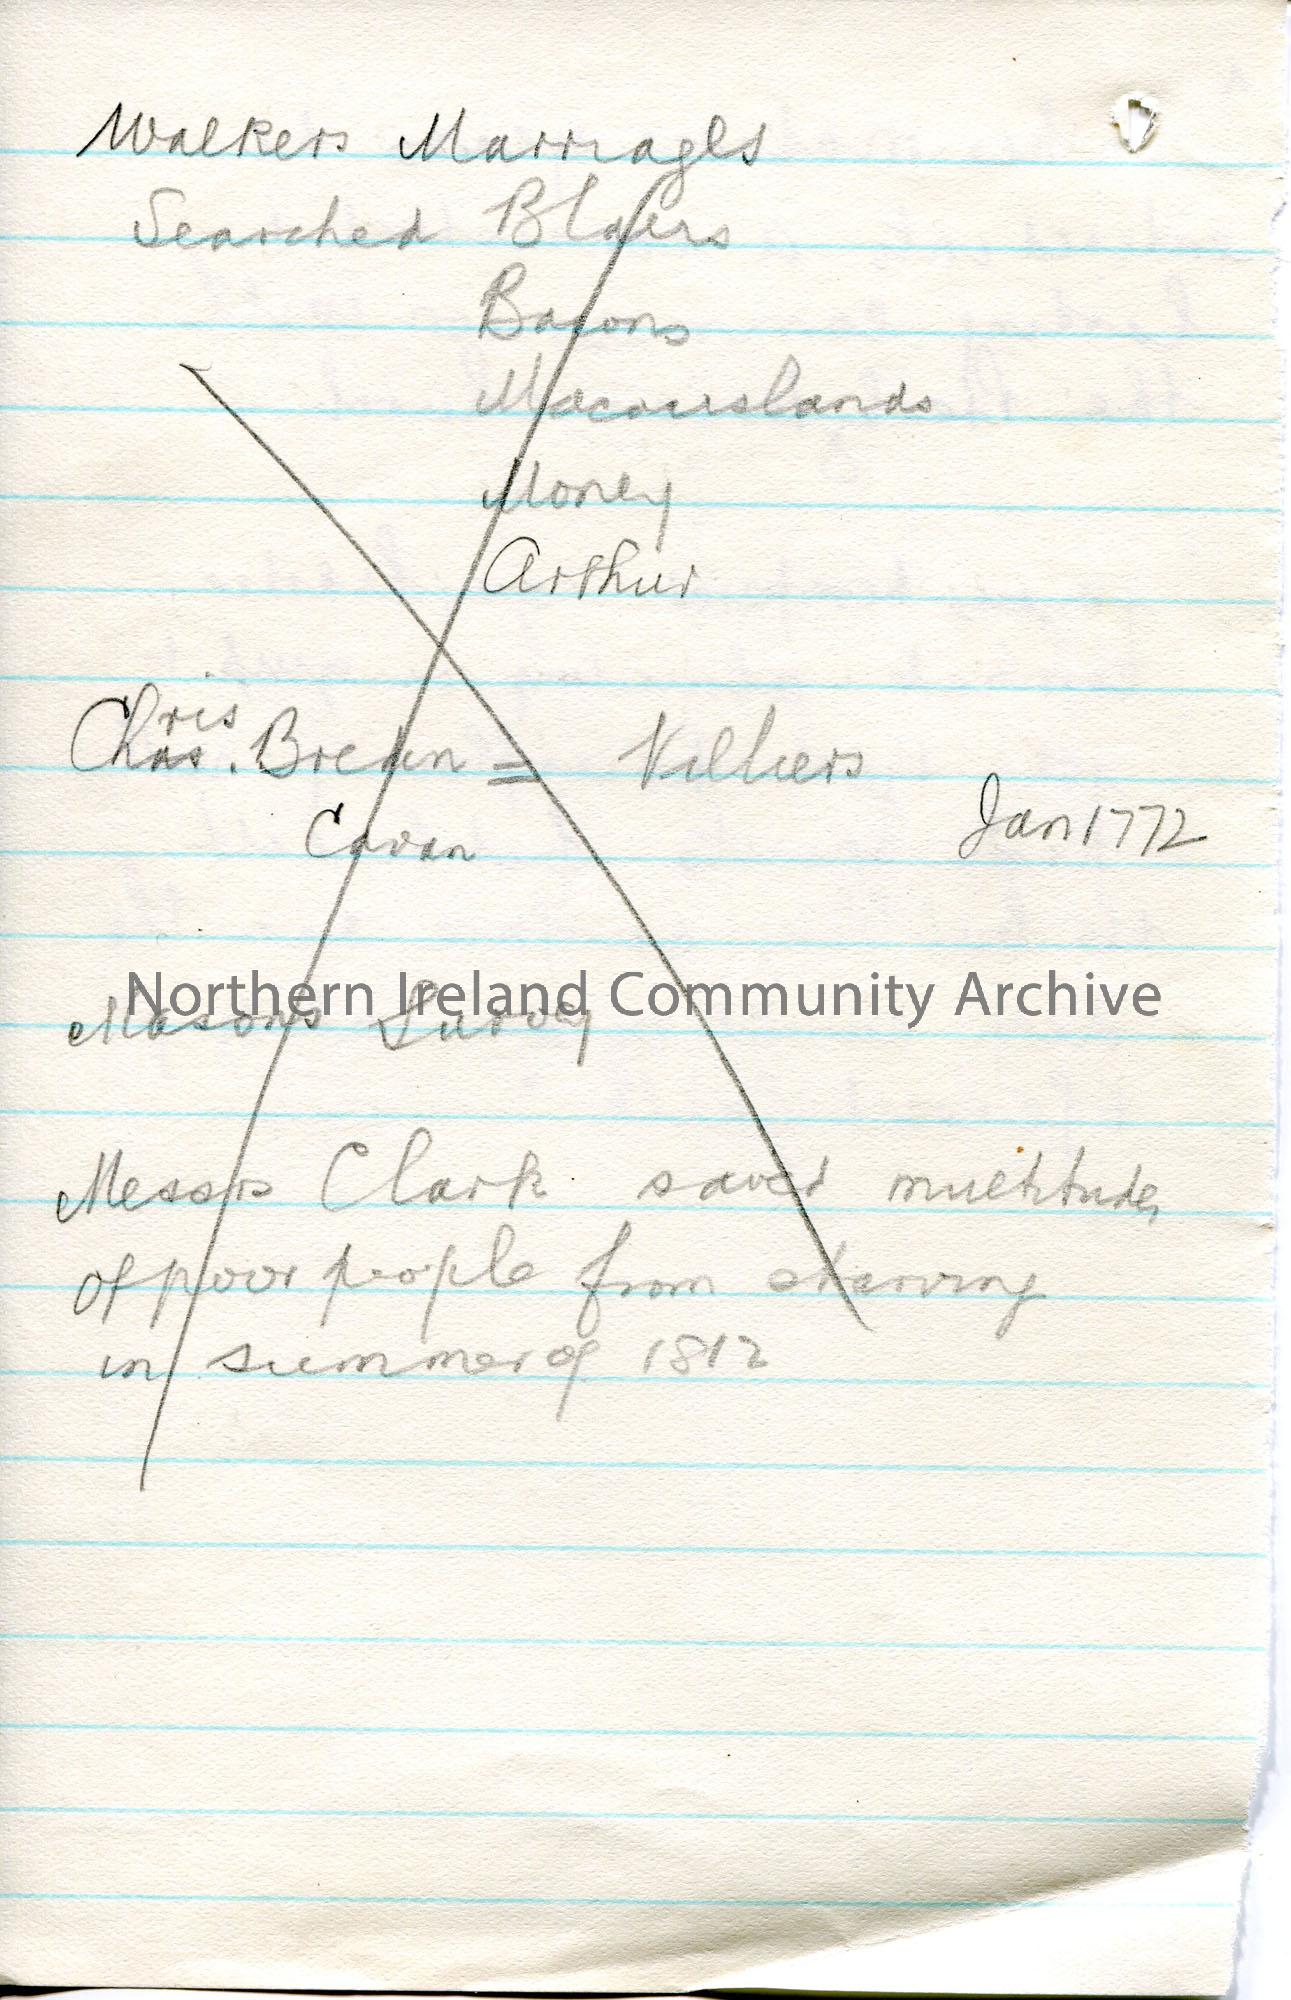 Walkers Marriages
Searched Blairs
Bacons
Macauslands
Money
Arthur
ris
Chas. Breden = Villiers
Cavan Jan 1772
Northern Ireland Community Archive
Masons Survey
Messrs Clark saved multitudes
of poor people from starving
in summer of 1812